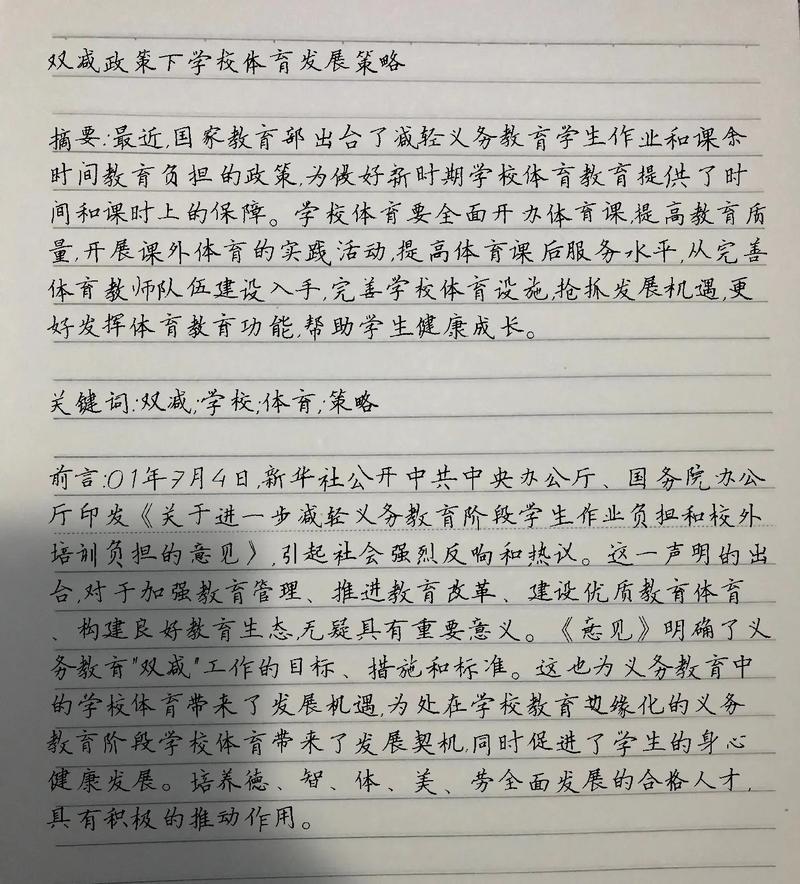 双减政策下学校体育发展策略
摘要:最近,国家教育部出台了减轻义务教育学生作业和课余
时间教育负担的政策,为做好新时期学校体育教育提供了时
间和课时上的保障。学校体育要全面开办体育课,提高教育质
量,开展课外体育的实践活动,提高体育课后服务水平,从完善
体育教师队伍建设入手,完善学校体育设施,抢抓发展机遇,更
好发挥体育教育功能,帮助学生健康成长。
关键词:双减;学校;体育;策略
前言:01年7月4日,新华社公开中共中央办公厅、国务院办公
厅印发《关于进一步减轻义务教育阶段学生作业负担和校外
培训负担的意见》,引起社会强烈反响和热议。这一声明的出
台,对于加强教育管理、推进教育改革、建设优质教育体育
、构建良好教育生态,无疑具有重要意义。《意见》明确了义
务教育"双减"工作的目标、措施和标准。这也为义务教育中
的学校体育带来了发展机遇,为处在学校教育边缘化的义务
教育阶段学校体育带来了发展契机,同时促进了学生的身心
健康发展。培养德、智、体、美、劳全面发展的合格人才,
具有积极的推动作用。